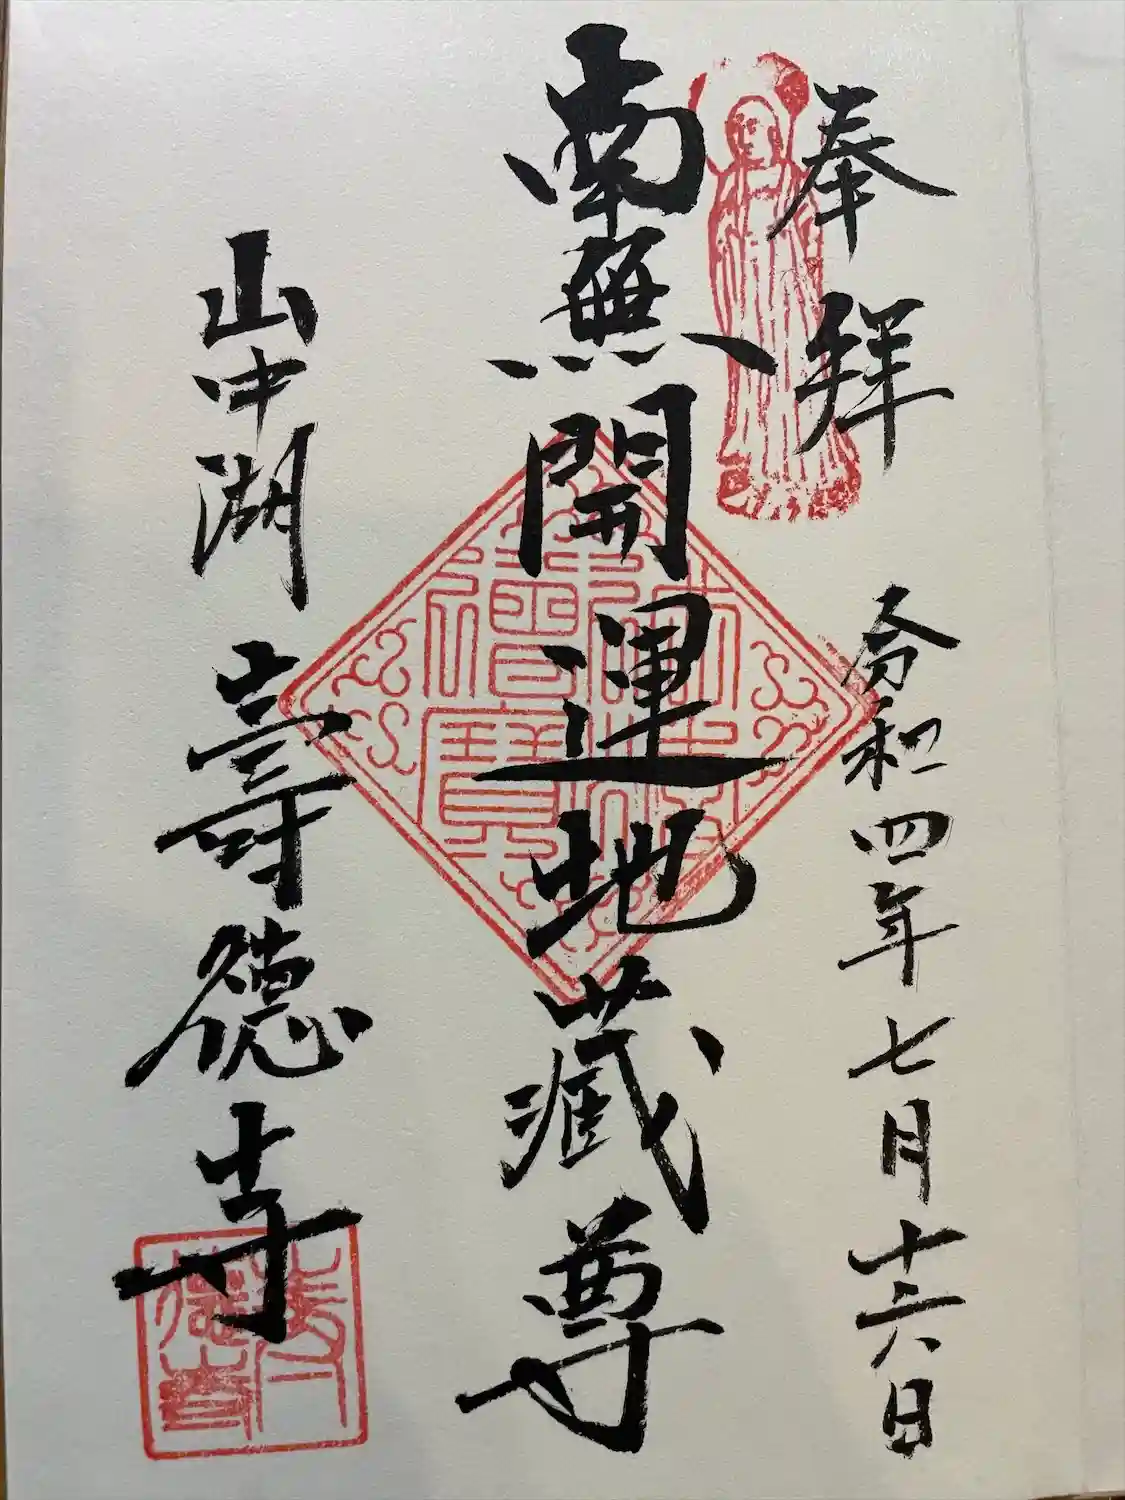 奉拝
令和四年七月十六日
南無開運地蔵尊
山中湖
壽徳寺
佛法僧寶